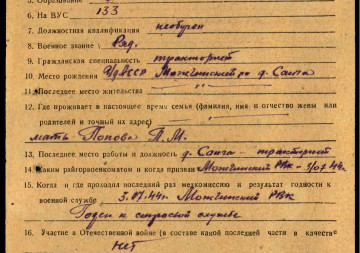 5. Образование
6. На ВУС 133
7. Должностная квалификация необучен
8. Военное звание Ряд.
9. Гражданская специальность тракторист
10. Место рождения УдАССР Можгинский р-н д. Санга
11. Последнее место жительства
12. Где проживает в настоящее время семья (фамилия, имя и отчество жены или
родителей и точный их адрес)
мать Попова П. М.
13. Последнее место работы и должность д. Санга - тракторист
14. Каким райгорвоенкоматом и когда призван Можгинский РВК - 3/07.44г.
15. Когда и где проходил последний раз медкомиссию и результат годности к
военной службе 3.07.44г. Можгинский РВК
Годен к строевой службе
16. Участие в Отечественной войне (в составе какой последней части и качестве
Нет